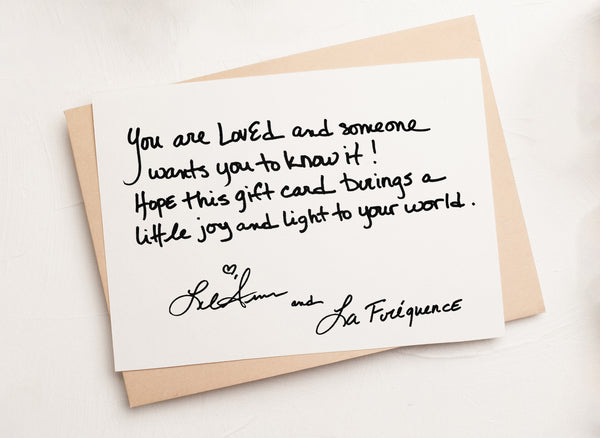 You are LovEd and someone
wants you to know it!
HopE this gift card brings a
little joy and light to your world.
and La Fréquence